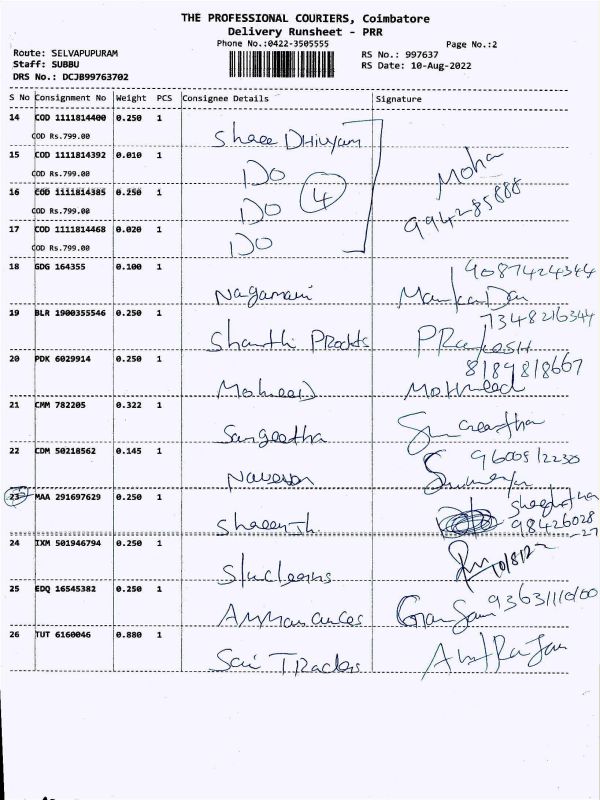 THE PROFESSIONAL COURIERS, Coimbatore
Delivery Runsheet - PRR
Phone No.:0422-3505555
Page No.:2
Route: SELVAPUPURAM
Staff: SUBBU
DRS No.: DCJB99763702
RS No.: 997637
RS Date: 10-Aug-2022
S No Consignment No Weight PCS Consignee Details Signature
14 COD 1111814400 0.250 1
COD Rs.799.00
Shree Dhivyam
15 COD 1111814392 0.010 1
COD Rs.799.00
DO
Moha
16 COD 1111814385 0.250 1
COD Rs.799.00
DO 4
994285888
17 COD 1111814468 0.020 1
COD Rs.799.00
DO
18 GDG 164355 0.100 1
9087424344
Nagamani
19 BLR 1900355546 0.250 1
7348216344
Shanthi Prodts PRakesH
20 PDK 6029914 0.250 1
8189818667
Mohneed Mothneed
21 CMM 782205 0.322 1
Sangeetha
22 CDM 50218562 0.145 1
9600512230
Naveen
23 MAA 291697629 0.250 1
98426028
-27
24 IXM 501946794 0.250 1
10/8/22
25 EDQ 16545382 0.250 1
9363111000
26 TUT 6160046 0.880 1
Sai TRaders